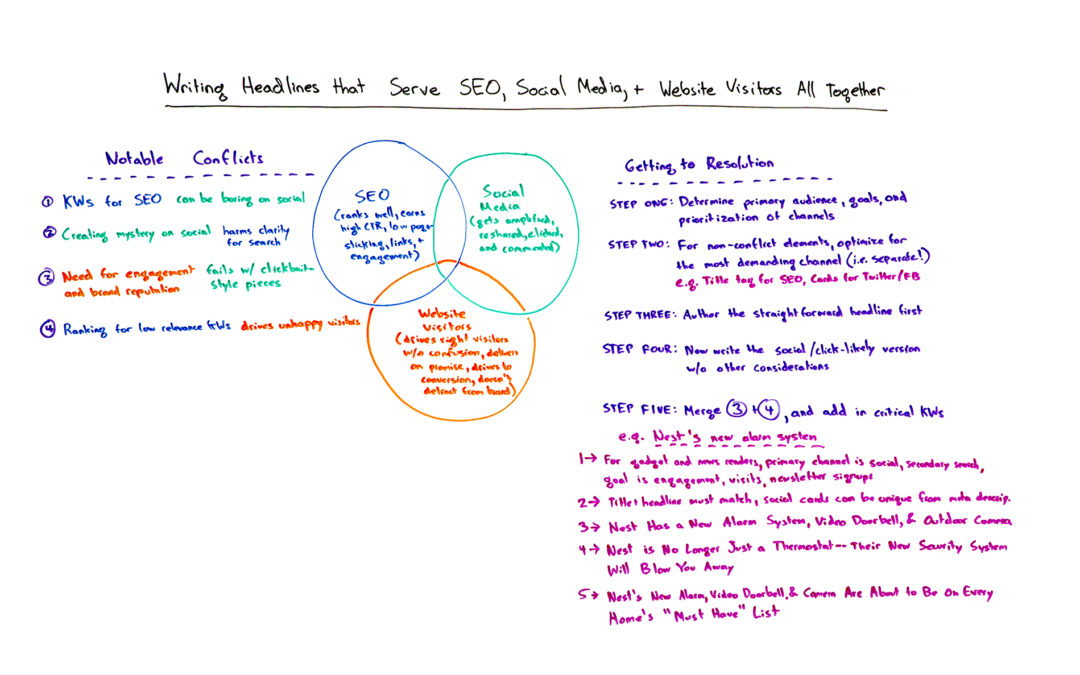 Writing Headlines that Serve SEO, Social Media, + Website Visitors All Together
Notable Conflicts
① KWs for SEO can be boring on social
② Creating mystery on social harms clarity
for search
③ Need for engagement fails w/ clickbait-
and brand reputation style pieces
④ Ranking for low relevance KWs drives unhappy visitors
SEO
(ranks well, earns
high CTR, low pogo-
sticking, links, +
engagement)
Social
Media
(gets amplified,
reshared, clicked,
and commented)
Website
Visitors
(drives right visitors
w/o confusion, delivers
on promise, drives to
conversion, doesn't
detract from brand)
Getting to Resolution
STEP ONE: Determine primary audience, goals, and
prioritization of channels
STEP TWO: For non-conflict elements, optimize for
the most demanding channel (i.e. separate!)
e.g. Title tag for SEO, Cards for Twitter/FB
STEP THREE: Author the straightforward headline first
STEP FOUR: Now write the social/click-likely version
w/o other considerations
STEP FIVE: Merge ③ + ④, and add in critical KWs
e.g. Nest's new alarm system
1→ For gadget and news readers, primary channel is social, secondary search,
goal is engagement, visits, newsletter signups
2→ Title + headline must match, social cards can be unique from meta descrip.
3→ Nest Has a New Alarm System, Video Doorbell, & Outdoor Camera
4→ Nest is No Longer Just a Thermostat-- Their New Security System
Will Blow You Away
5→ Nest's New Alarm, Video Doorbell, & Camera Are About to Be On Every
Home's "Must Have" List